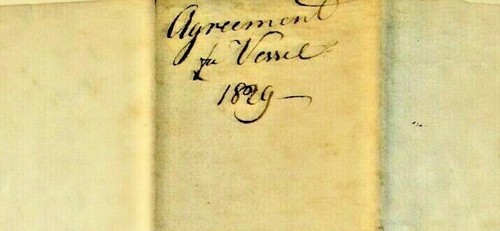 Agreement
for Vessel
1829